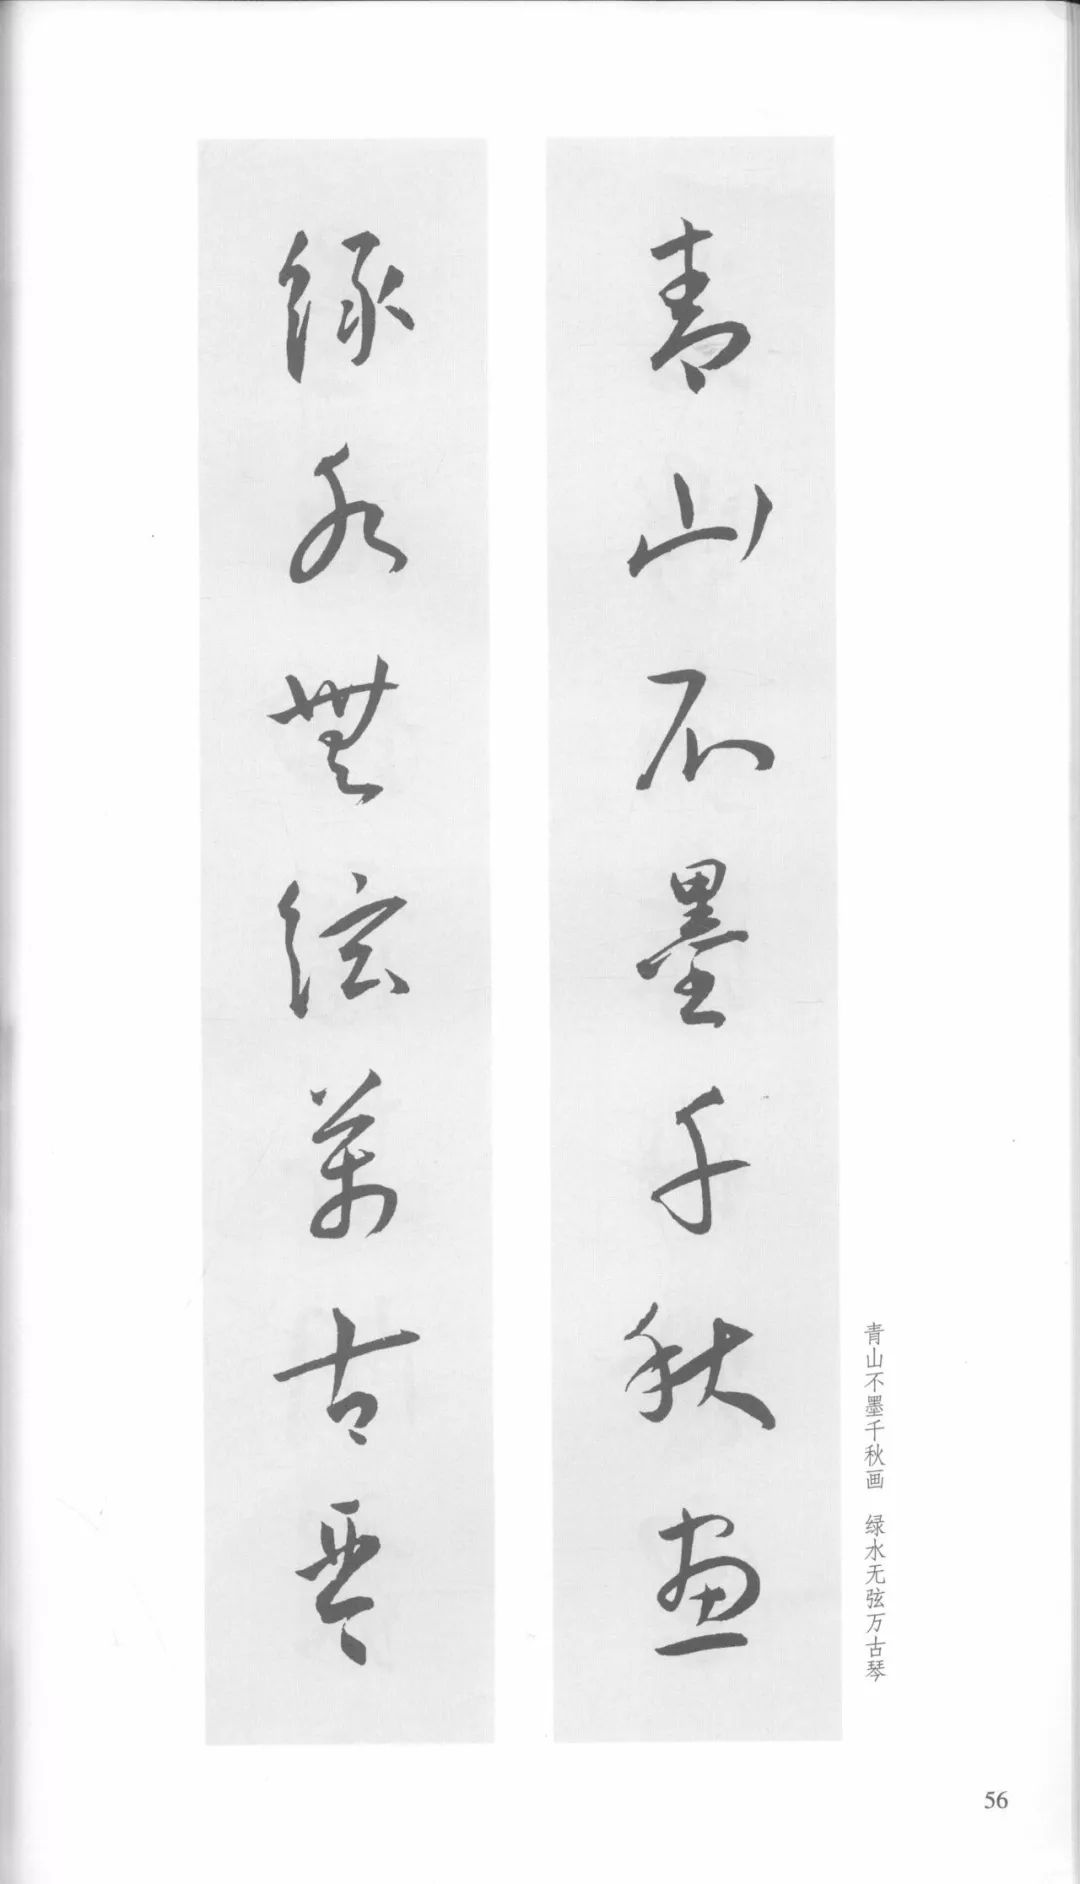 青山不墨千秋畫
綠水無絃萬古琴
青山不墨千秋画 绿水无弦万古琴
56